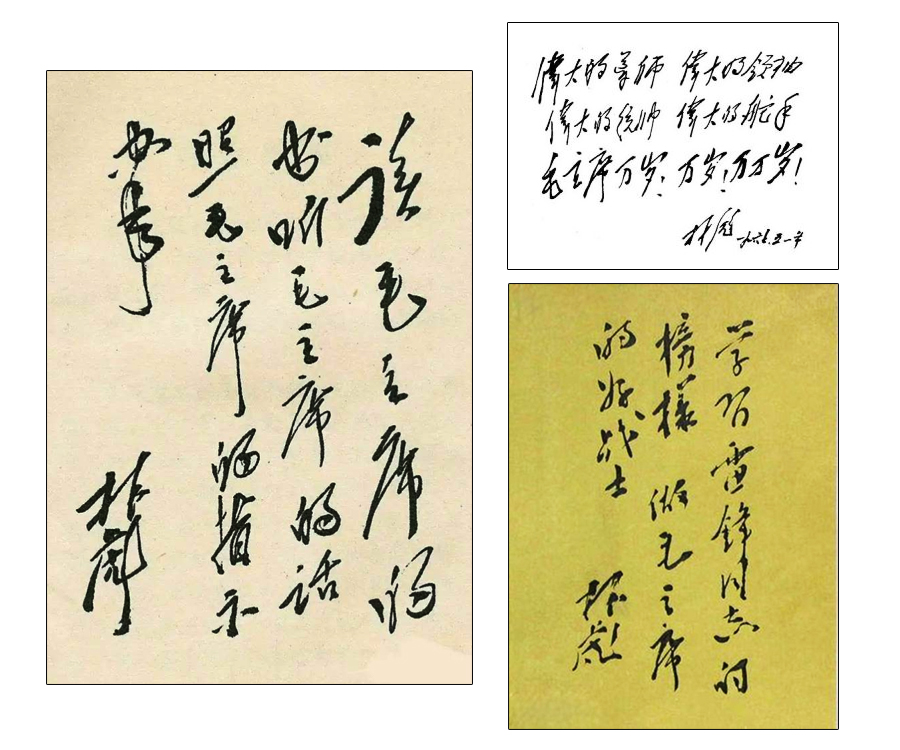 读毛主席的
书听毛主席的话
照毛主席的指示
办事
林彪
偉大的导师 偉大的领袖
偉大的统帅 偉大的舵手
毛主席万岁!万岁!万万岁!
林彪
学习雷锋同志的
榜樣 做毛主席
的好战士
林彪